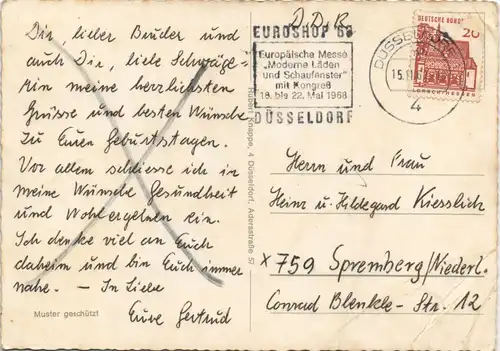 Dir lieber Bruder und
auch Dir, liebe Schwäge-
rin meine herzlichsten
Grüsse und besten Wünsche
zu Euren Geburtstagen.
Vor allem schliesse ich in
meine Wünsche Gesundheit
und Wohlergehen ein.
Ich denke viel an Euch
daheim und bin Euch immer
nahe. – In Liebe
Eure Gertrud
Muster geschützt
Hubert Knappe, 4 Düsseldorf, Adersstraße 57
D.D.R.
EUROSHOP 68
Europäische Messe
„Moderne Läden
und Schaufenster"
mit Kongreß
18. bis 22. Mai 1968
DÜSSELDORF
DÜSSELDORF
4
DEUTSCHE BUNDESPOST
20
Herrn und Frau
Heinz u. Hildegard Kiesslich
x 759 Spremberg/Niederl.
Conrad Blenkle-Str. 12